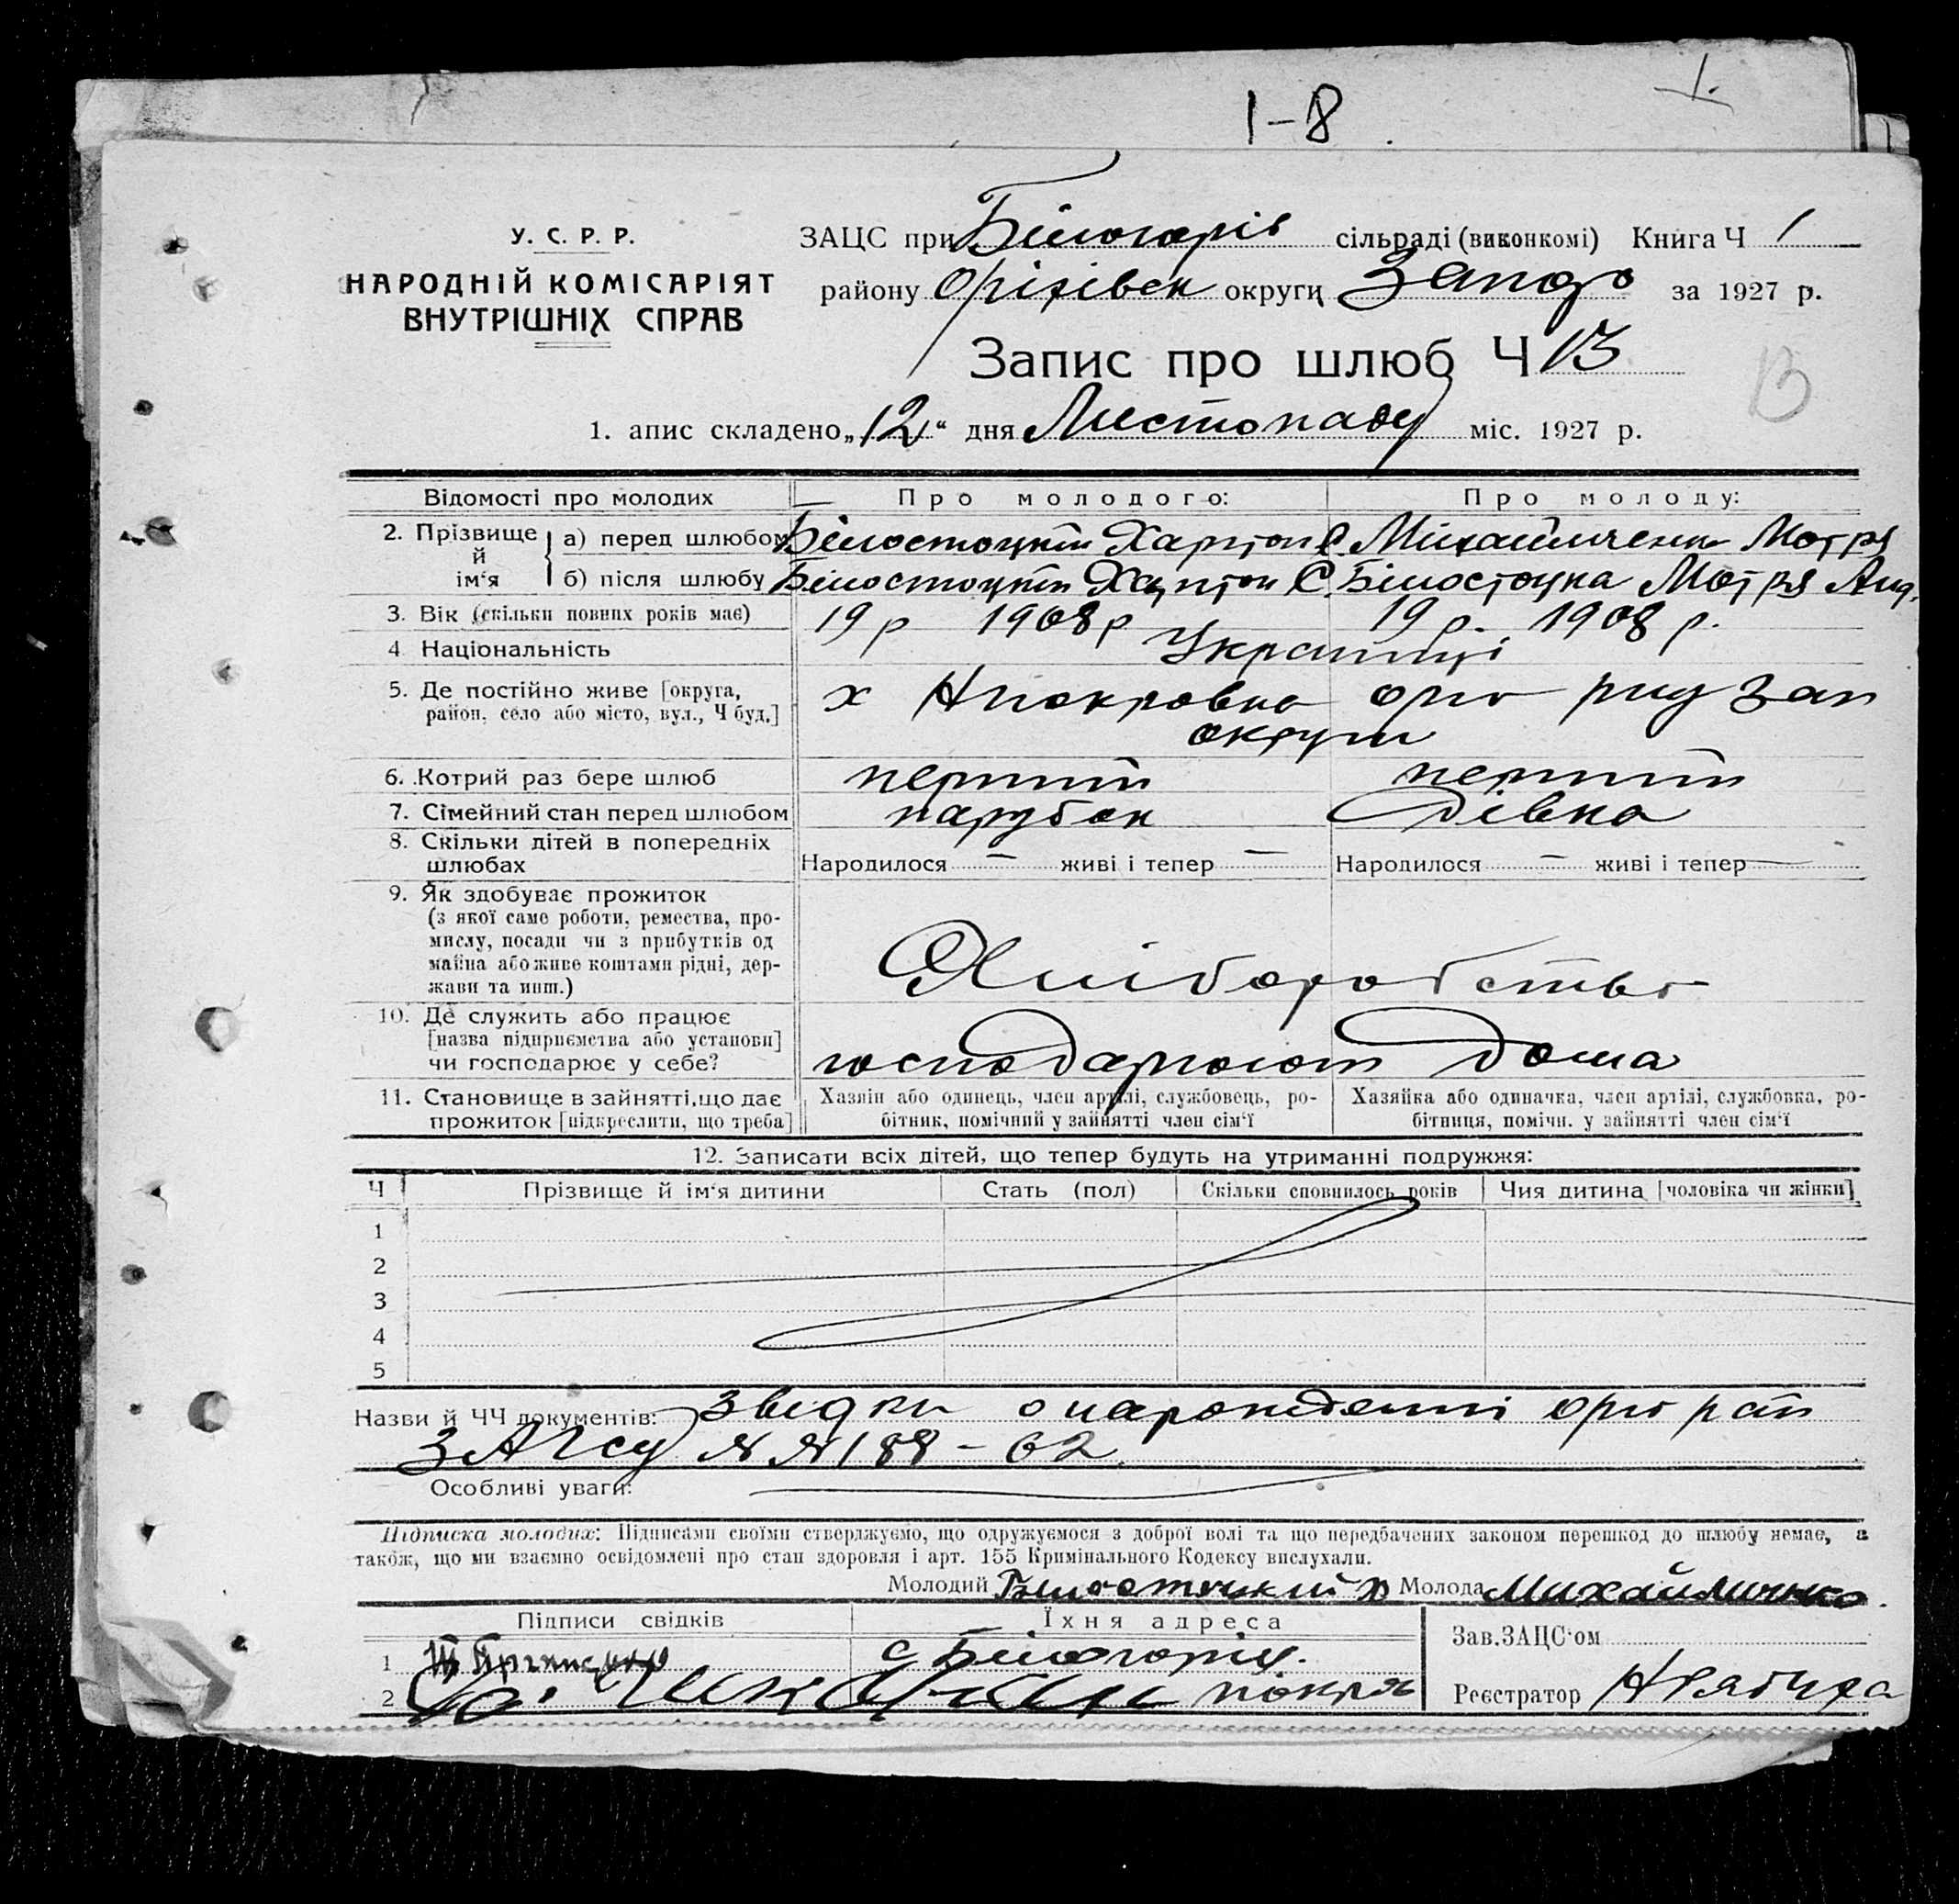 1-8
1.
У. С. Р. Р.
НАРОДНІЙ КОМІСАРІЯТ
ВНУТРІШНІХ СПРАВ
ЗАЦС при Білогорів сільраді (виконкомі) Книга Ч 1
району Оріхівск округи Запор за 1927 р.
Запис про шлюб Ч 13
13
1. апис складено „12“ дня Листопаду міс. 1927 р.
Відомості про молодих Про молодого: Про молоду:
2. Прізвище й ім‘я
а) перед шлюбом Білостоцкій Харітон С. Михайличенк Мотря
б) після шлюбу Білостоцкій Харітон С. Білостоцка Мотря Анд.
3. Вік (скільки повних років має) 19 р 1908 р 19 р. 1908 р.
4 Національність Українці
5. Де постійно живе [округа,
район, село або місто, вул., Ч буд.]
х Нпокровка оріх Зап
округи
6. Котрий раз бере шлюб перший перший
7. Сімейний стан перед шлюбом парубок дівка
8. Скільки дітей в попередніх
шлюбах Народилося — живі і тепер — Народилося — живі і тепер —
9. Як здобуває прожиток
(з якої саме роботи, ремества, про-
мислу, посади чи з прибутків од
майна або живе коштами рідні, дер-
жави та инш.)
Хліборобство
10. Де служить або працює
[назва підприємства або установи]
чи господарює у себе? господарюют дома
11. Становище в зайнятті, що дає
прожиток [підкреслити, що треба]
Хазяін або одинець, член артілі, службовець, ро-
бітник, помічний у зайнятті член сім‘ї
Хазяйка або одиначка, член артілі, службовка, ро-
бітниця, помічн. у зайнятті член сім‘ї
12. Записати всіх дітей, що тепер будуть на утриманні подружжя:
Ч Прізвище й ім‘я дитини Стать (пол) Скільки сповнилось років Чия дитина [чоловіка чи жінки]
1
2
3
4
5
Назви й ЧЧ документів: звідки о нарожденні оріх рай
ЗАГСу №№ 188 - 62.
Особливі уваги:
Підписка молодих: Підписами своїми стверджуємо, що одружуємося з доброї волі та що передбачених законом перешкод до шлюбу немає, а
також, що ми взаємно освідомлені про стан здоровля і арт. 155 Кримінального Кодексу вислухали.
Молодий Білостоцкий Х Молода Михайличнко.
Підписи свідків Їхня адреса
1 с Білогорів.
2 покров
Зав. ЗАЦС‘ом
Реєстратор